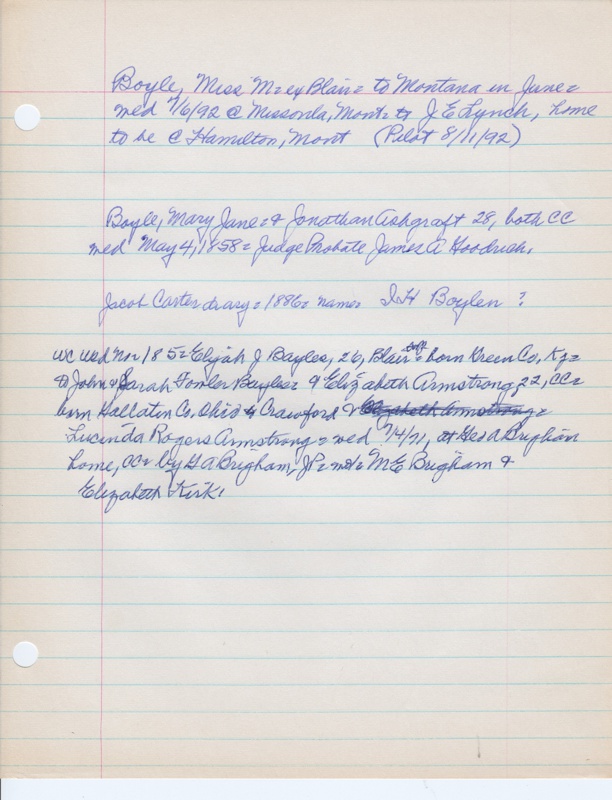 Boyle, Miss M= ex Blair= to Montana in June=
wed 7/6/92 @ Missoula, Mont= to J E Lynch, home
to be @ Hamilton, Mont (Pilot 8/11/92)
Boyle, Mary Jane= & Jonathan Ashcraft 28, both CC
wed May 4, 1858= Judge Probate James A Goodrich.
Jacob Carter diary= 1886= name= I H Boylen ?
WC Wed No 185= Elijah J Bayles, 26, Blair= born Green Co, Ky=
to John & Sarah Fowler Bayles= & Elizabeth Armstrong 22, CC=
born Gallatin Co, Ohio to Crawford &
Lucinda Rogers Armstrong= wed 7/4/71, at Geo A Brigham
home, CC= by G A Brigham, JP= M E Brigham &
Elizabeth Kirk.